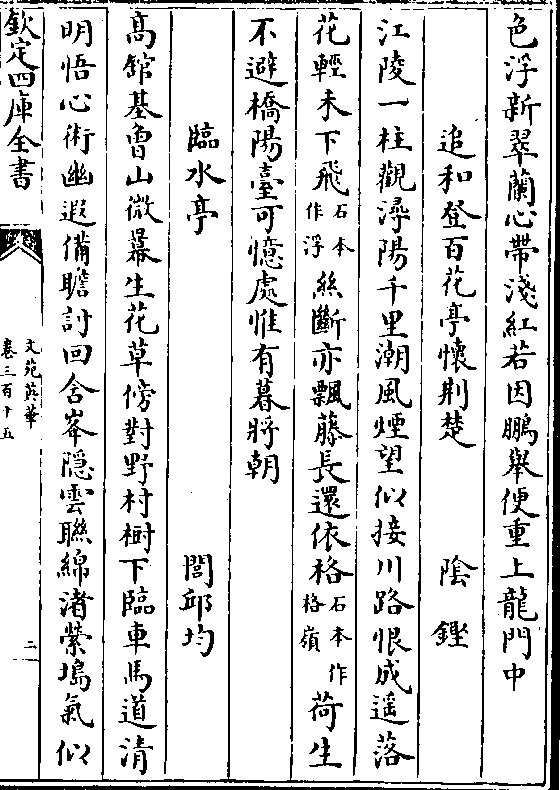 色浮新翠蘭心帶淺紅若因鵬舉便重上龍門中
追和登百花亭懷荆楚　　陰鏗
江陵一柱觀潯陽千里潮風煙望似接川路恨成遥落
花輕未下飛石本作浮絲斷亦飄藤長還依格石本作格嶺荷生
不避橋陽臺可憶處惟有暮將朝
臨水亭　　閭邱均
高館基曾山微幕生花草傍對野村樹下臨車馬道清
明悟心術幽遐備瞻討回合峯隠雲聯綿渚縈塢氣似
欽定四庫全書
文苑英華
卷三百十五
二